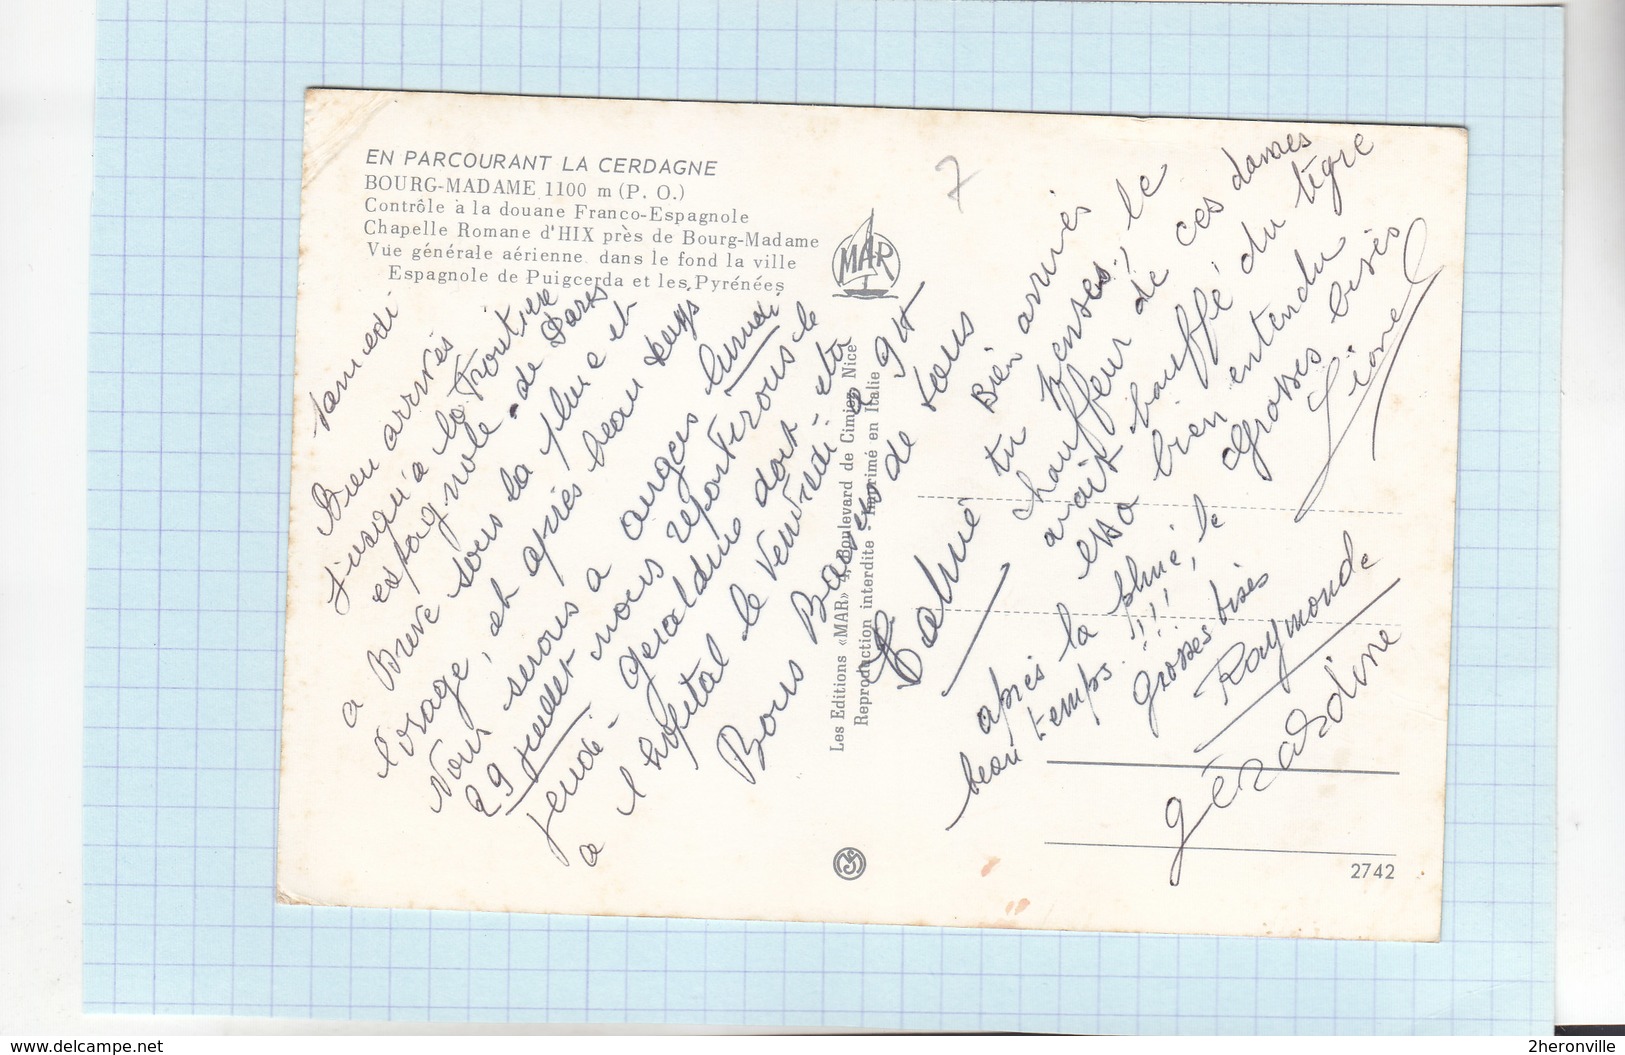 EN PARCOURANT LA CERDAGNE
BOURG-MADAME 1100 m (P. O.)
Contrôle à la douane Franco-Espagnole
Chapelle Romane d'HIX près de Bourg-Madame
Vue générale aérienne dans le fond la ville
Espagnole de Puigcerda et les Pyrénées
MAR
7
samedi
Bien arrivés
jusqu'a la frontiere
espagnole - de Paris
a Brive sous la pluie et
l'orage, et après beau temps
Nous serons a angers lundi
29 juillet nous repartirons le
jeudi - geraldine doit etre
a l'hopital le vendredi
Bons Baisers de tous
Les Editions «MAR» 4, Boulevard de Cimiez, Nice
Reproduction interdite - Imprimé en Italie
Bien arrivés
tu penses, le
chauffeur de ces dames
avait bouffé du tigre
esso bien entendu
Grosses bises
Lionel
après la pluie, le
beau temps. !!!
Grosses bises
Raymonde
géraldine
2742
www.delcampe.net
2heronville